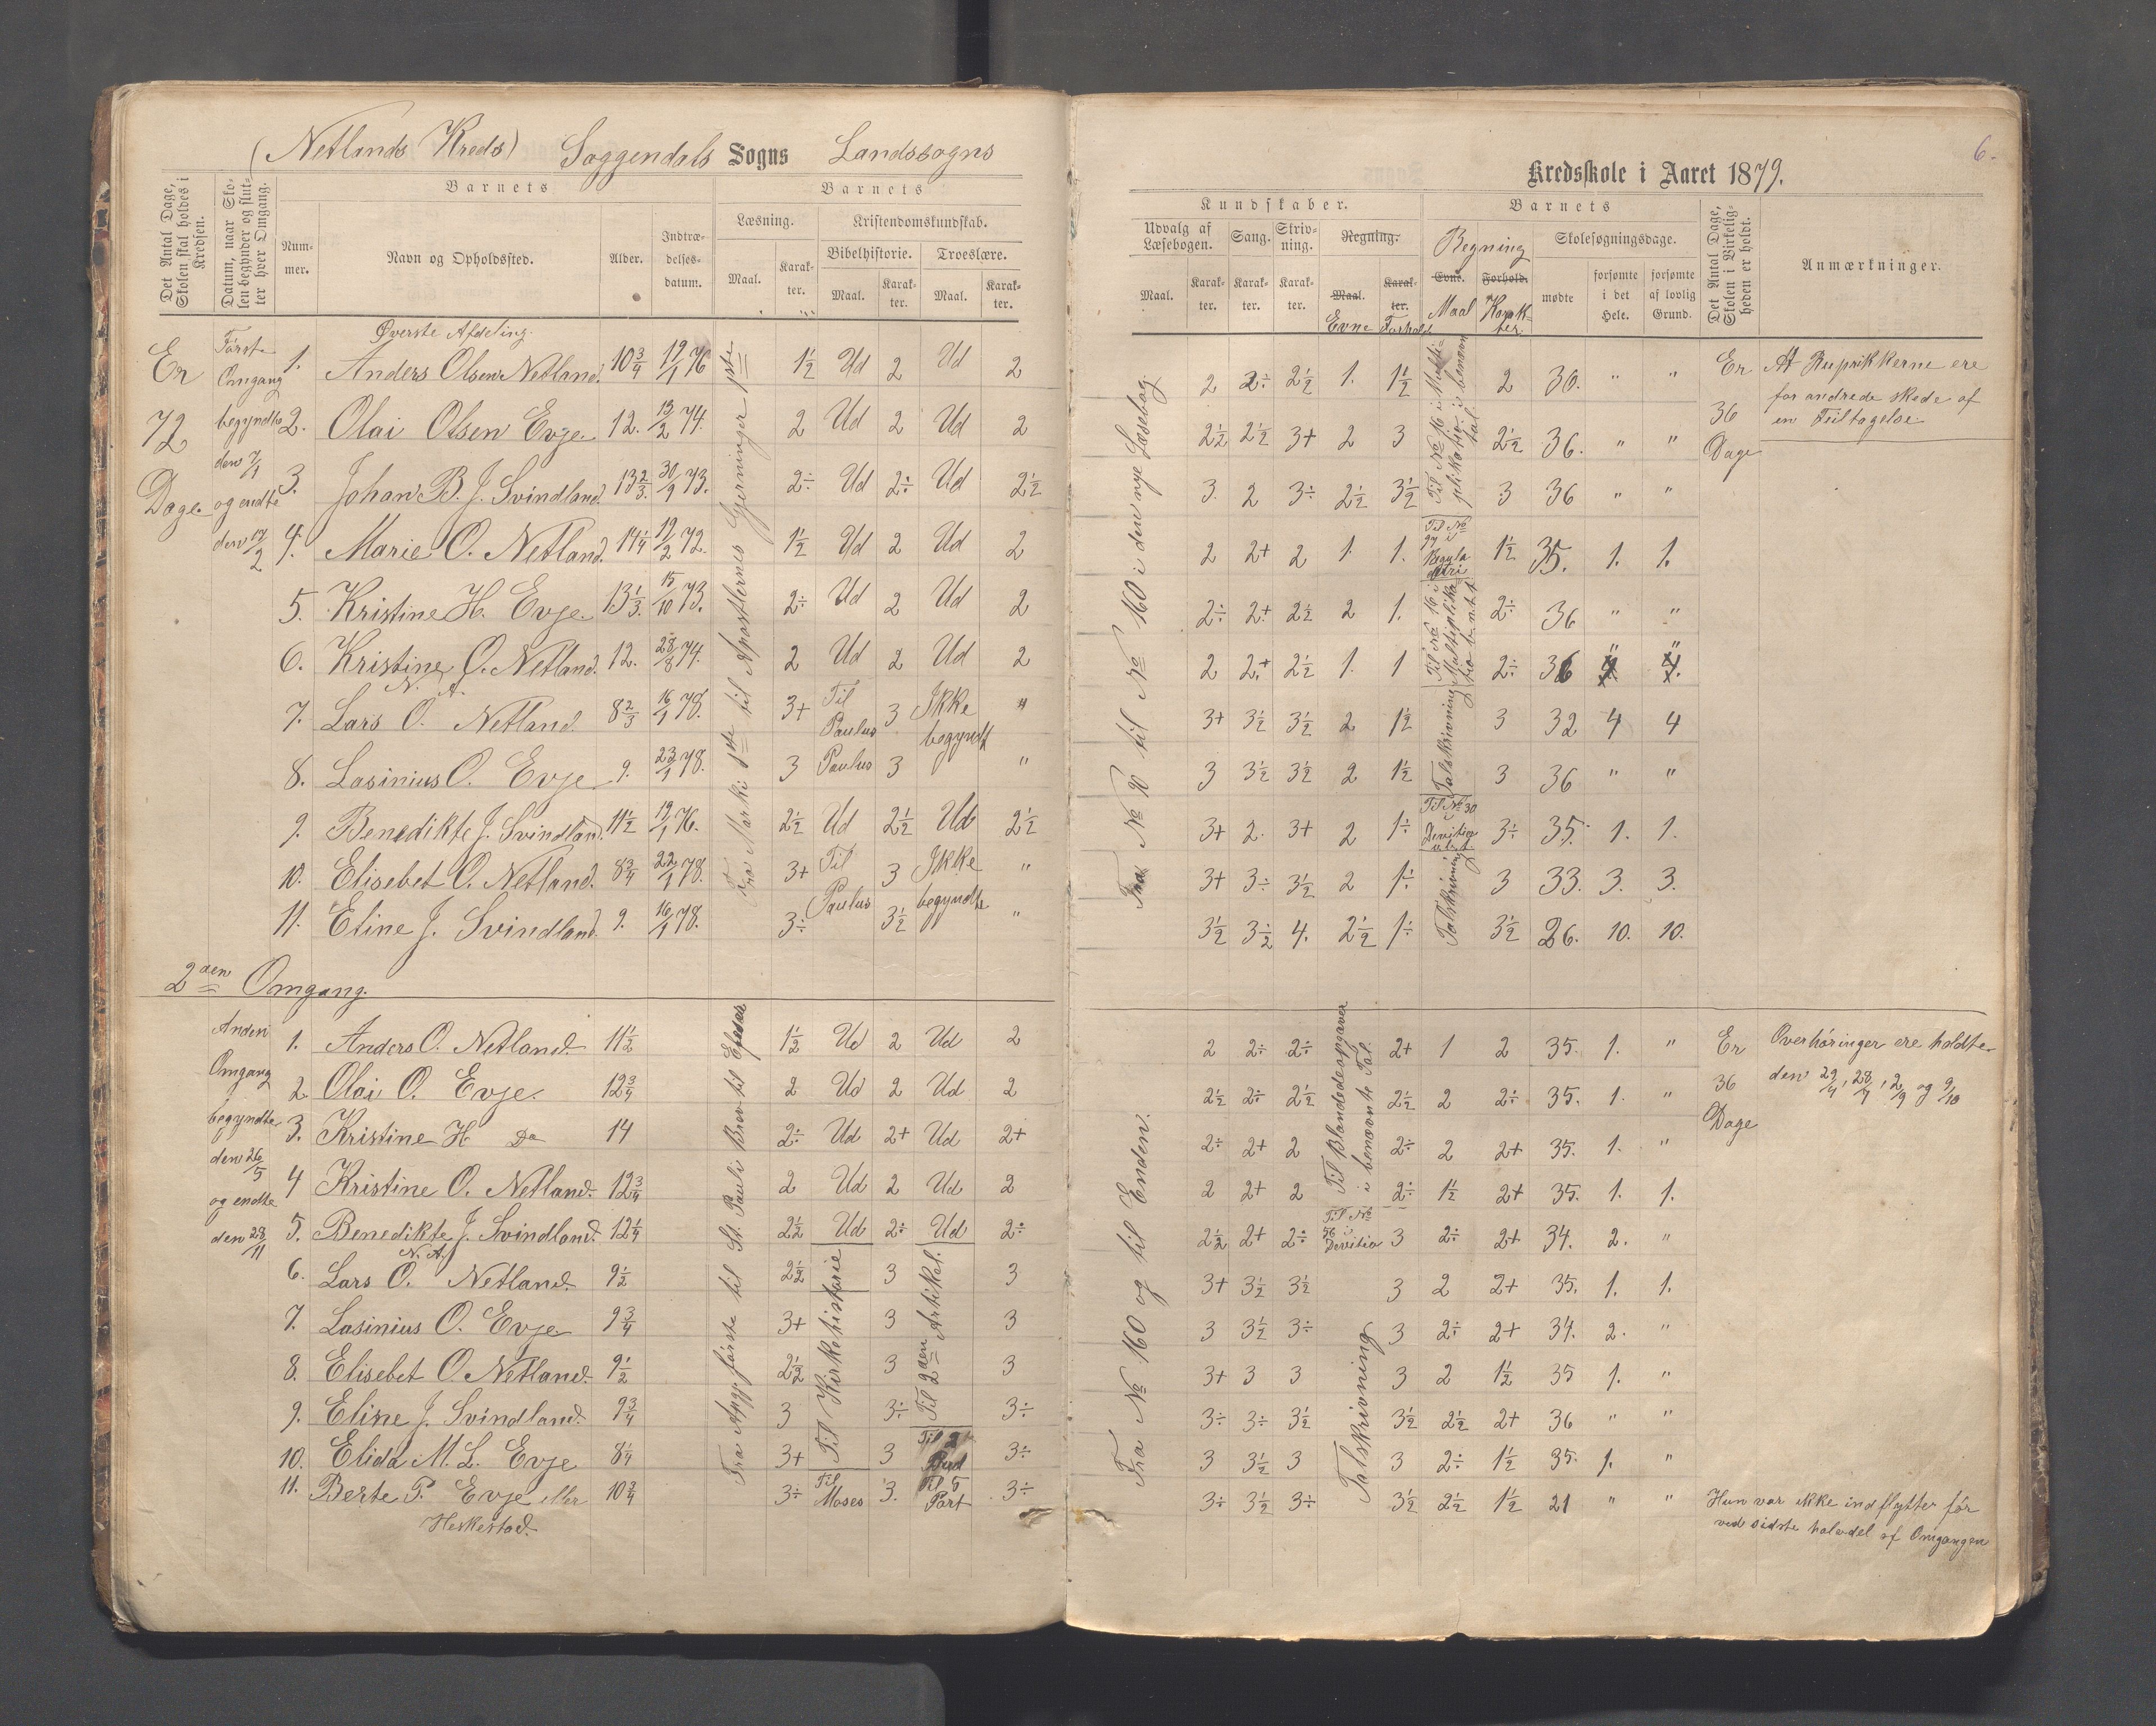 (Netlands Kreds) Soggendals Sogns Landssogns
Kredsskole i Aaret 1879.
6.
Det Antal Dage, Skolen skal holdes i Kredsen.
Datum, naar Skolen begynder og slutter hver Omgang.
Barnets
Nummer.
Navn og Opholdssted.
Alder.
Indtrædelsesdatum.
Barnets
Læsning.
Maal. Karakter.
Kristendomskundskab.
Bibelhistorie. Troeslære.
Maal. Karakter. Maal. Karakter.
Kundskaber.
Udvalg af Læsebogen.
Maal. Karakter.
Sang. Karakter.
Skrivning. Karakter.
Regning. Maal. Karakter.
Evne Forhold
Barnets
Regning
Evne. Forhold.
Maal Karakter.
Skolesøgningsdage.
mødte
forsømte i det Hele.
forsømte af lovlig Grund.
Det Antal Dage, Skolen i Virkeligheden er holdt.
Anmærkninger.
Er 72 Dage.
Første Omgang begyndte den 7/1 og endte den 17/2
Øverste Afdeling.
Fra Marki 1ste til Apostlernes Gjerninger 1ste
Fra No 10 til No 160 i den nye Læsebog.
1. Anders Olsen Netland. 10 3/4 19/1 76 1 1/2 Ud 2 Ud 2 2 2÷ 2 1/2 1. 1 1/2 2 36. " "
2. Olai Olsen Evje. 12. 13/2 74. 2 Ud 2 Ud 2 2 1/2 2 1/2 3+ 2 3 2 1/2 36. " "
3. Johan B. J. Svindland. 13 2/3. 30/9 73. 2÷ Ud 2÷ Ud 2 1/2 3. 2 3÷ 2 1/2 3 1/2 3 36 " "
4. Marie O. Netland. 14 1/4 19/2 72. 1 1/2 Ud 2 Ud 2 2 2+ 2 1. 1. 1 1/2 35. 1. 1.
5. Kristine H. Evje. 13 1/3. 15/10 73. 2÷ Ud 2 Ud 2 2÷ 2+ 2 1/2 2 1. 2÷ 36 " "
6. Kristine O. Netland. 12. 28/8 74. 2 Ud 2 Ud 2 2 2+ 2 1/2 1. 1 2÷ 36 " "
N. A.
7. Lars O. Netland 8 2/3 16/1 78. 3+ Til Paulus 3 Ikke begyndt " 3+ 3 1/2 3 1/2 2 1 1/2 3 32 4 4
8. Lasinius O. Evje 9. 23/1 78. 3 Paulus 3 " 3 3 1/2 3 1/2 2 1 1/2 Talskrivning 3 36 " "
9. Benedikte J. Svindland. 11 1/2 19/1 76. 2 1/2 Ud 2 1/2 Ud 2 1/2 3+ 2. 3+ 2 1÷ Til No 30 i 3÷ 35. 1. 1.
10. Elisebet O. Netland. 8 3/4 22/1 78. 3+ Til Paulus 3 Ikke begyndte " 3+ 3÷ 3 1/2 2 1÷ 3 33. 3. 3.
11. Eline J. Svindland. 9. 16/1 78. 3÷ 3 1/2 " 3 1/2 3 1/2 4. 2 1/2 1÷ Talskrivning 3 1/2 26. 10. 10.
Er 36 Dage
At Ruprikkerne ere
forandrede skede af
en Feiltagelse.
2den Omgang.
Anden Omgang begyndte den 26/5 og endte den 28/11
Fra Agge første til St. Pauli Brev til Efeser
Fra No 160 og til Enden.
Til Blandedeopgaver i benævnte Tal.
1. Anders O. Netland. 11 1/2 1 1/2 Ud 2 Ud 2 2 2÷ 2÷ 2+ 1 2 35. 1. "
2. Olai O. Evje. 12 3/4 2 Ud 2 Ud 2 2 1/2 2÷ 2 1/2 2 1/2 2 2÷ 35. 1. "
3. Kristine H Do 14 2÷ Ud 2+ Ud 2+ 2÷ 2+ 2 2÷ 2 2+ 35. 1. "
4 Kristine O. Netland. 12 3/4 2 Ud 2 Ud 2 2 2+ 2 2÷ 1 1/2 2+ 35. 1. 1.
5. Benedikte J. Svindland. 12 1/4 2 1/2 Ud 2÷ Ud 2÷ 2 1/2 2+ 2÷ Til No 56 i Devitio 3 2÷ 2+ 34. 2. "
N. A.
6. Lars O. Netland. 9 1/2 2 1/2 Til Kirkehistorie 3 Til 2den Artikel. 3 3+ 3 1/2 3 1/2 Talskrivning 3 2 2+ 35. 1. 1.
7. Lasinius O. Evje 9 3/4 3+ 3 3 3 3 1/2 3÷ 3 2÷ 2+ 34. 2. "
8. Elisebet O. Netland. 9 1/2 2 1/2 3 3 3+ 3 3 3 2 1 1/2 35 1. "
9. Eline J. Svindland. 9 3/4 3 3÷ 3÷ 3÷ 3÷ 3 1/2 3 1/2 2 1/2 2+ 36 " "
10. Elida M. L. Evje 8 1/4 3+ 3 Til 2 Bud 3÷ 3 3 1/2 3 3 2÷ 1 1/2 35. 1. "
11. Berte P. Evje eller 10 3/4 3÷ Til Moses 3. Til 5 Part 3÷ 3÷ 3 1/2 3÷ 3 1/2 2 1/2 1 1/2 21 " "
Heskestad.
Er 36 Dage
Overhøringer ere holdte
den 29/4, 28/7, 2/9 og 9/10
Hun var ikke indflytter før
ved sidste halvdel af Omgangen